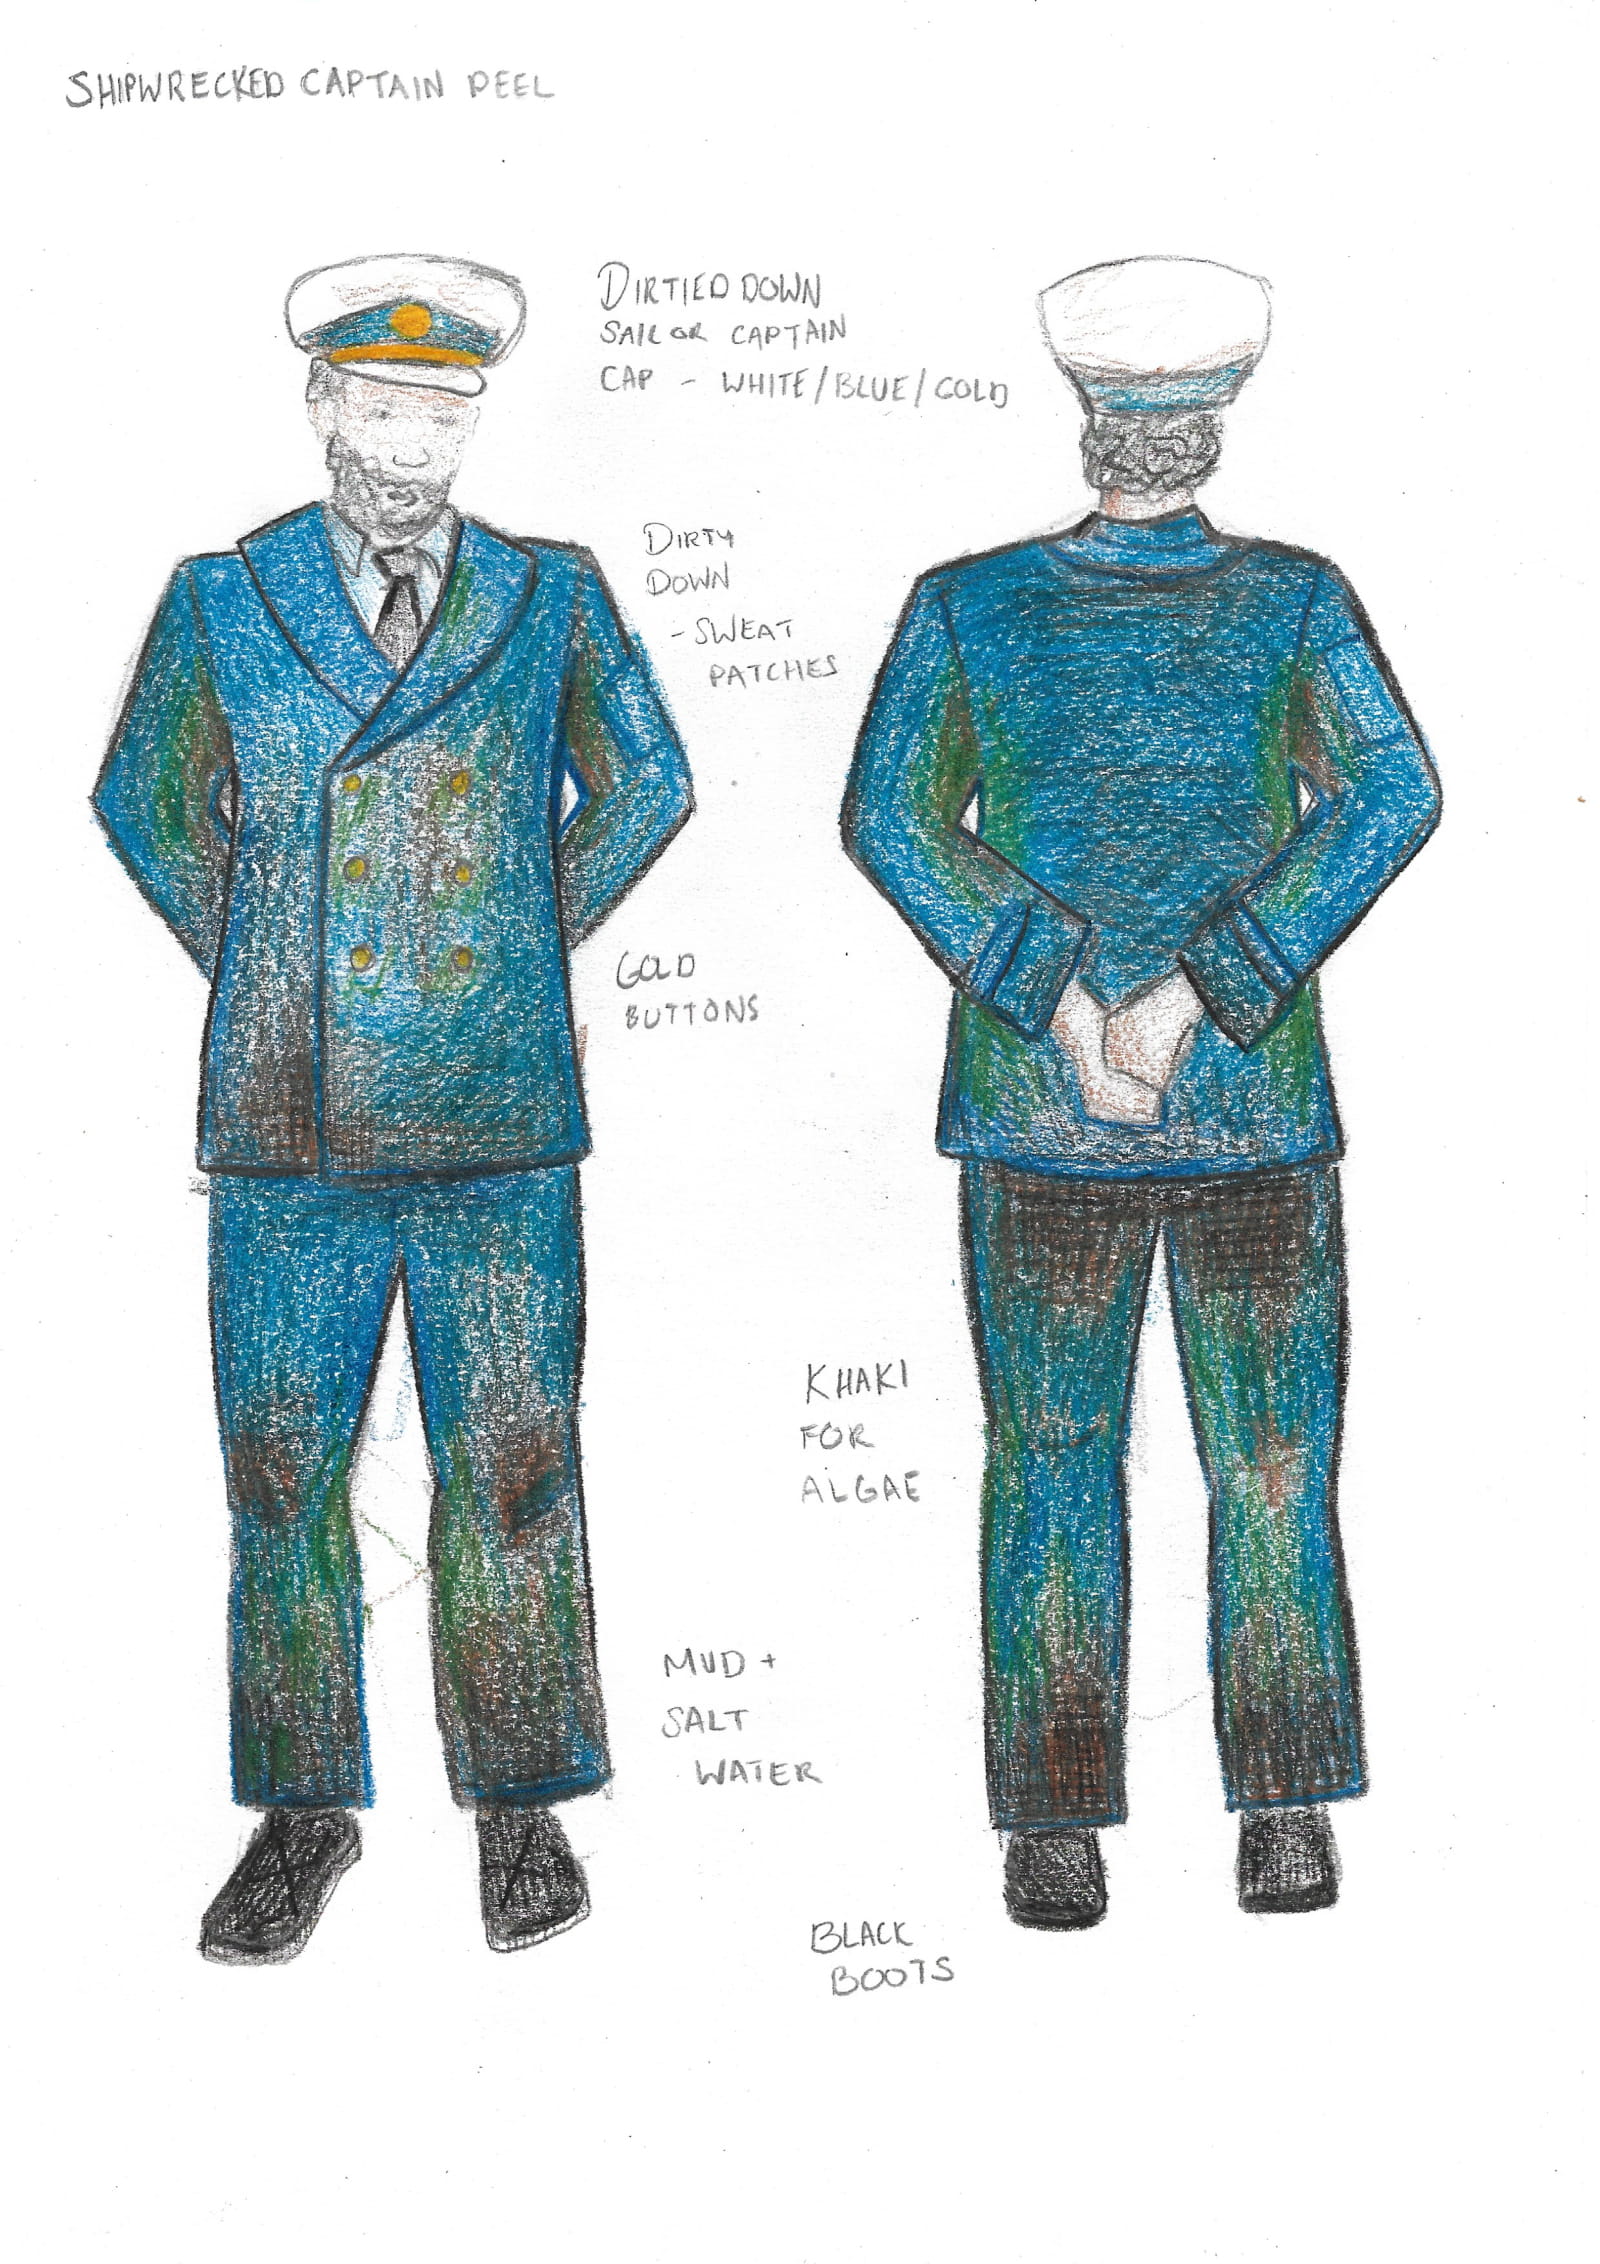 SHIPWRECKED CAPTAIN PEEL
DIRTIED DOWN
SAILOR CAPTAIN
CAP - WHITE/BLUE/GOLD
DIRTY
DOWN
- SWEAT
PATCHES
GOLD
BUTTONS
KHAKI
FOR
ALGAE
MUD +
SALT
WATER
BLACK
BOOTS